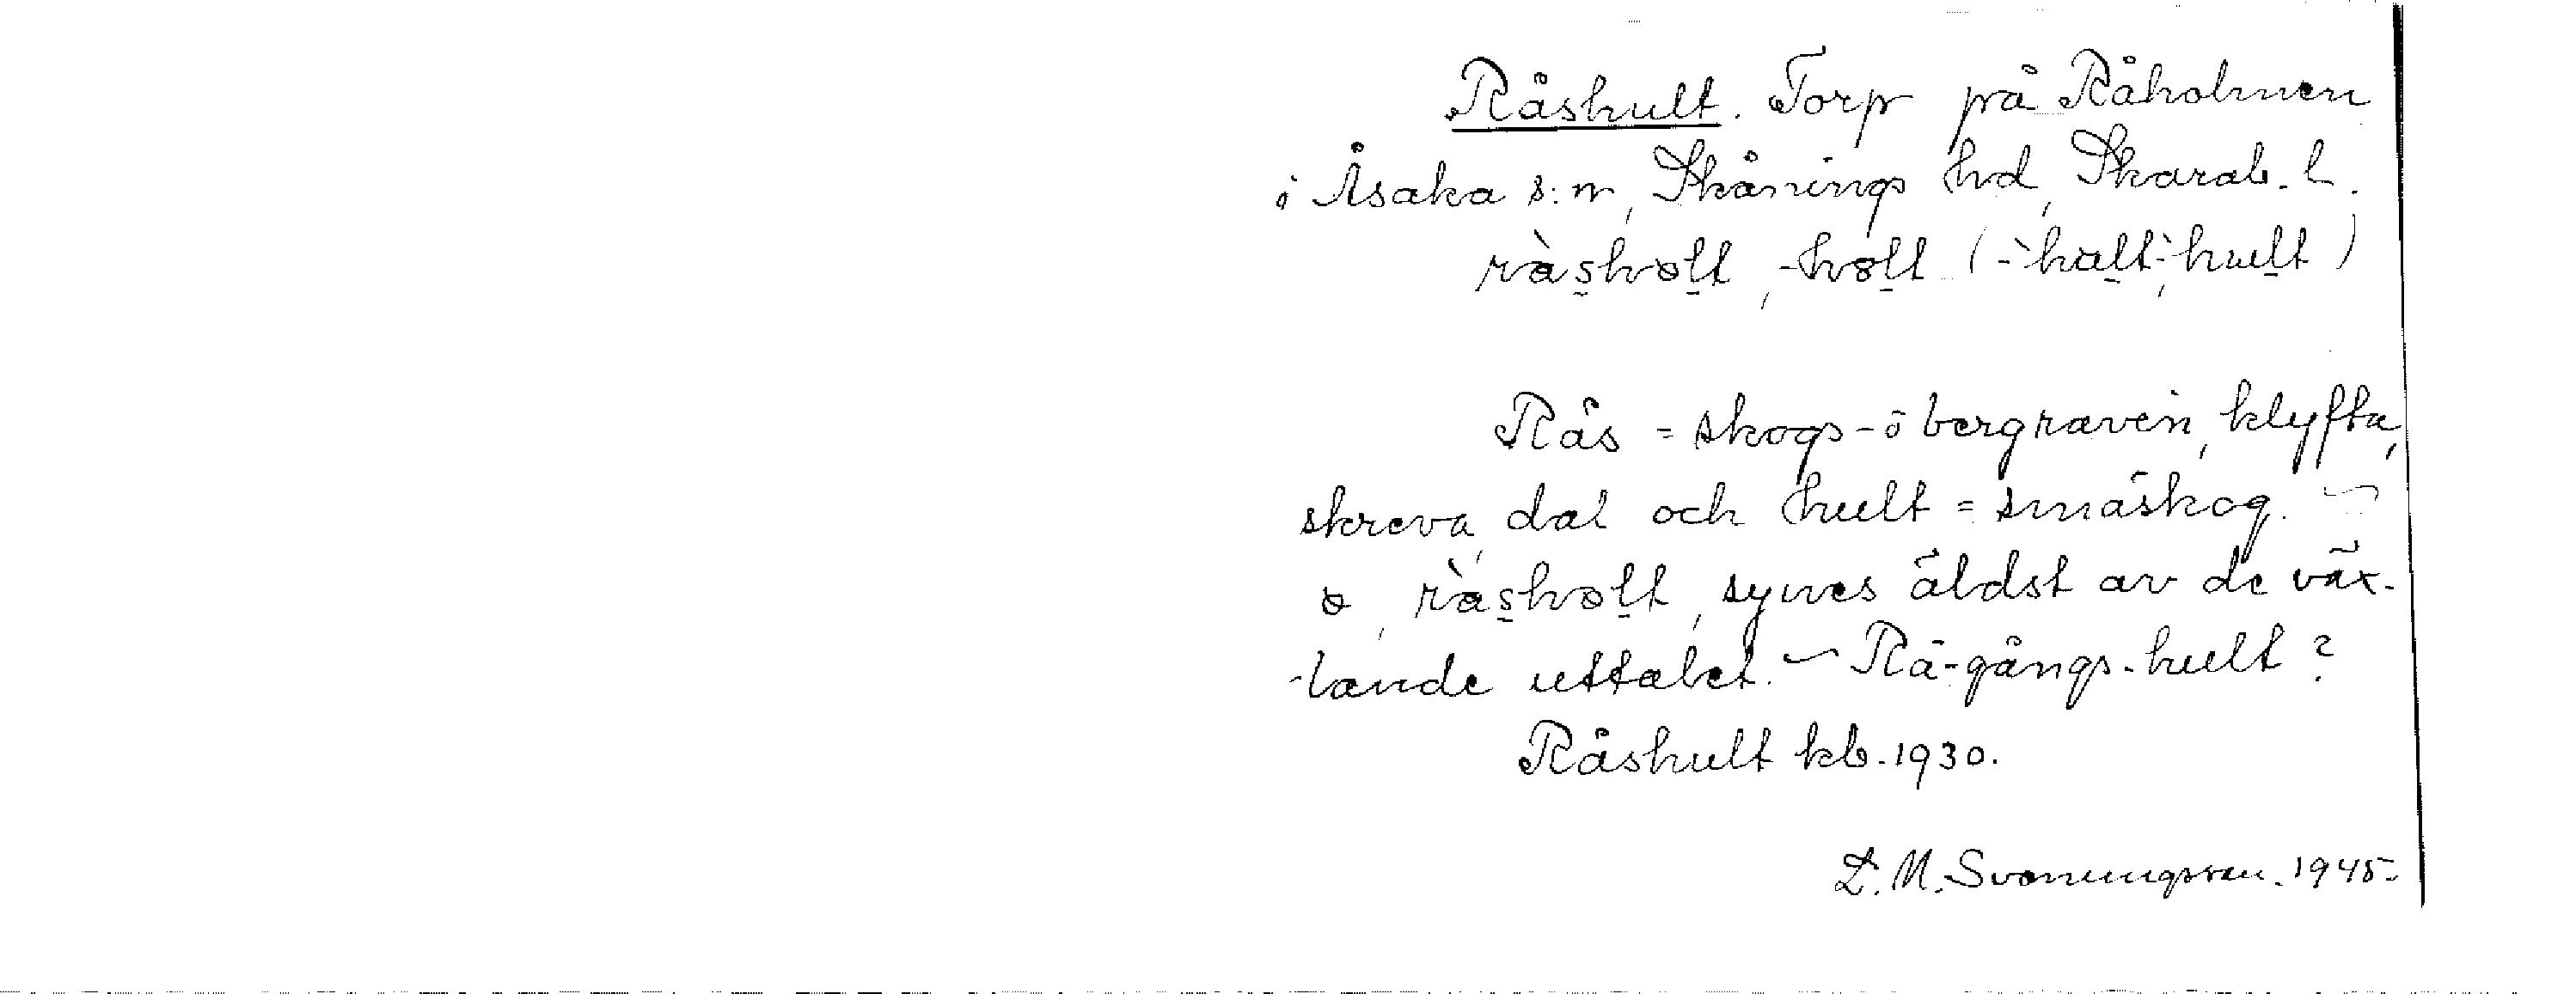 Råshult. Torp på Råholmen
i Åsaka s:n, Skånings hd, Skarab. l.
ràshollt, -hollt (-hàllt, -hullt)
Rås = skogs- o bergravin, klyfta,
skreva, dal och hult = småskog. ~
o, ràshollt, synes äldst av de väx-
-lande uttalet. ~ Rå-gångs-hult?
Råshult kb. 1930.
L. M. Svenungsson. 1945.